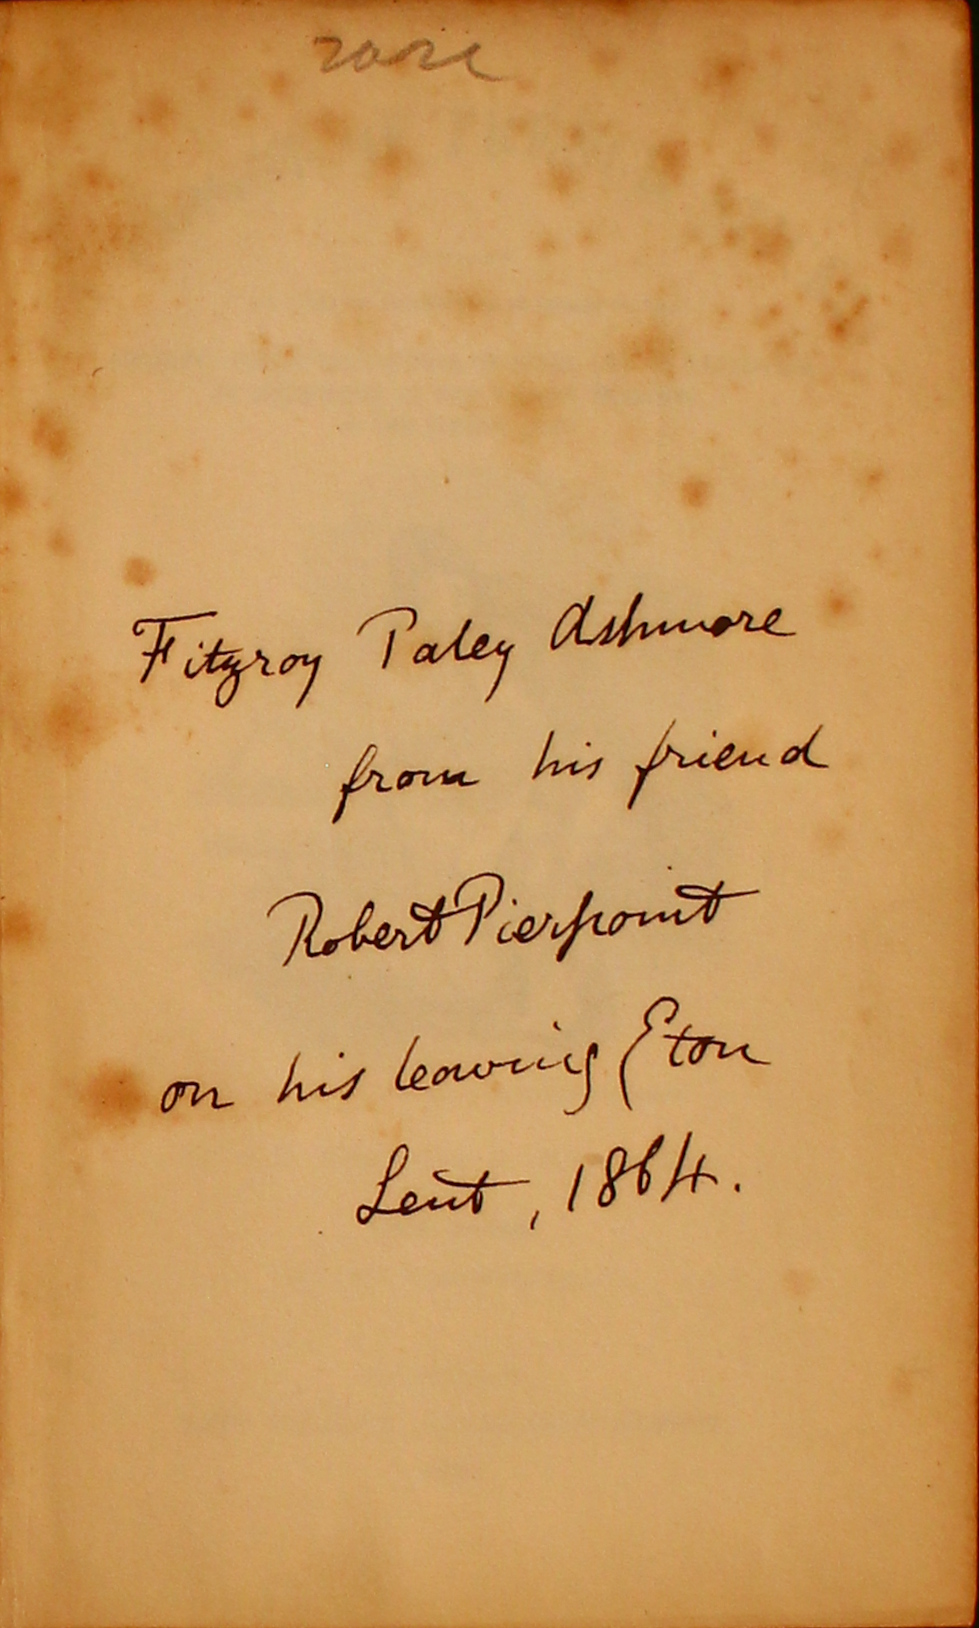 rare
Fitzroy Paley Ashmore
from his friend
Robert Pierpoint
on his leaving Eton
Lent, 1864.